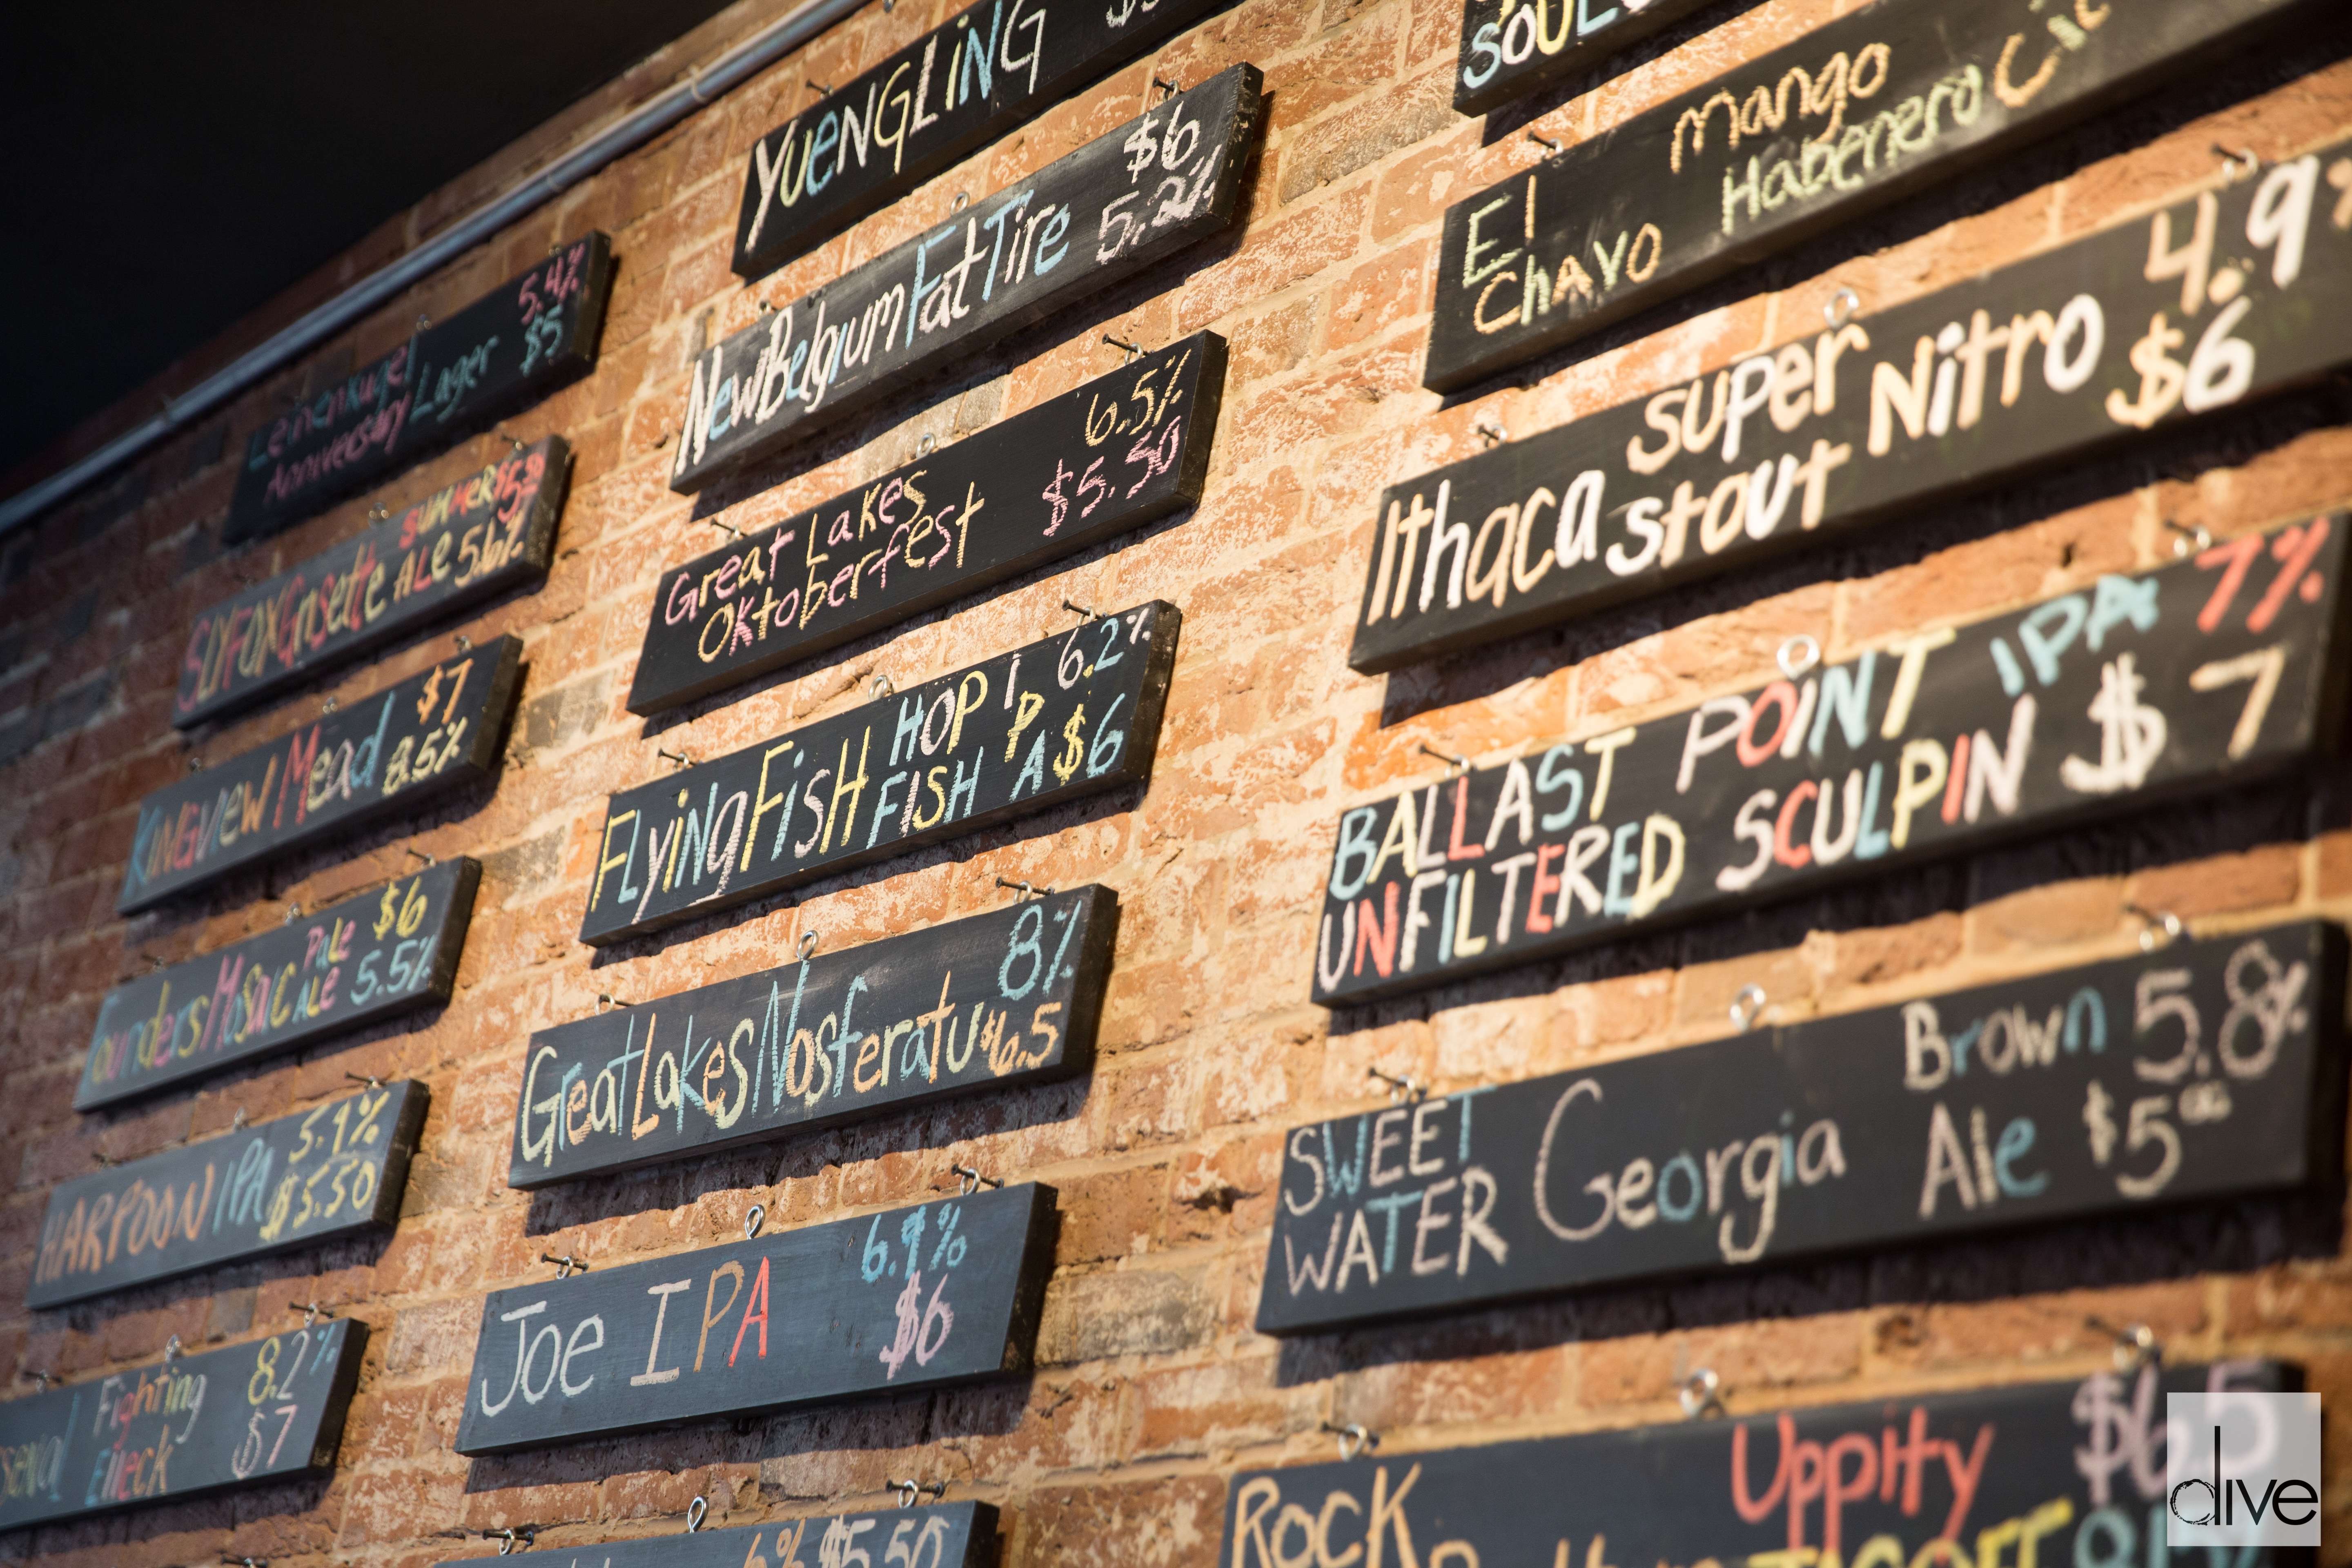 Leinenkugel 5.4%
Anniversary Lager $5
SLYFOX Grisette SUMMER
ALE 5.6%
KINGVIEW Mead $7
8.5%
Founders Mosaic Pale $6
ALE 5.5%
HARPOON IPA 5.9%
$5.50
Fighting 8.2%
$7
YUENGLiNG
New Belgium Fat Tire $6
5.2%
Great Lakes 6.5%
Oktoberfest $5.50
FLyiNg FisH HOP I 6.2%
FISH P A $6
Great Lakes Nosferatu 8%
$6.5
Joe IPA 6.9%
$6
6% $5.50
SOUL
El Mango
Chavo Habenero
Ithaca super Nitro 4.9%
stout $6
BALLAST POiNT IPA 7%
UNFILTERED SCULPIN $7
SWEET Georgia Brown 5.8%
WATER Ale $5.00
ROCK Uppity $6.5
dive